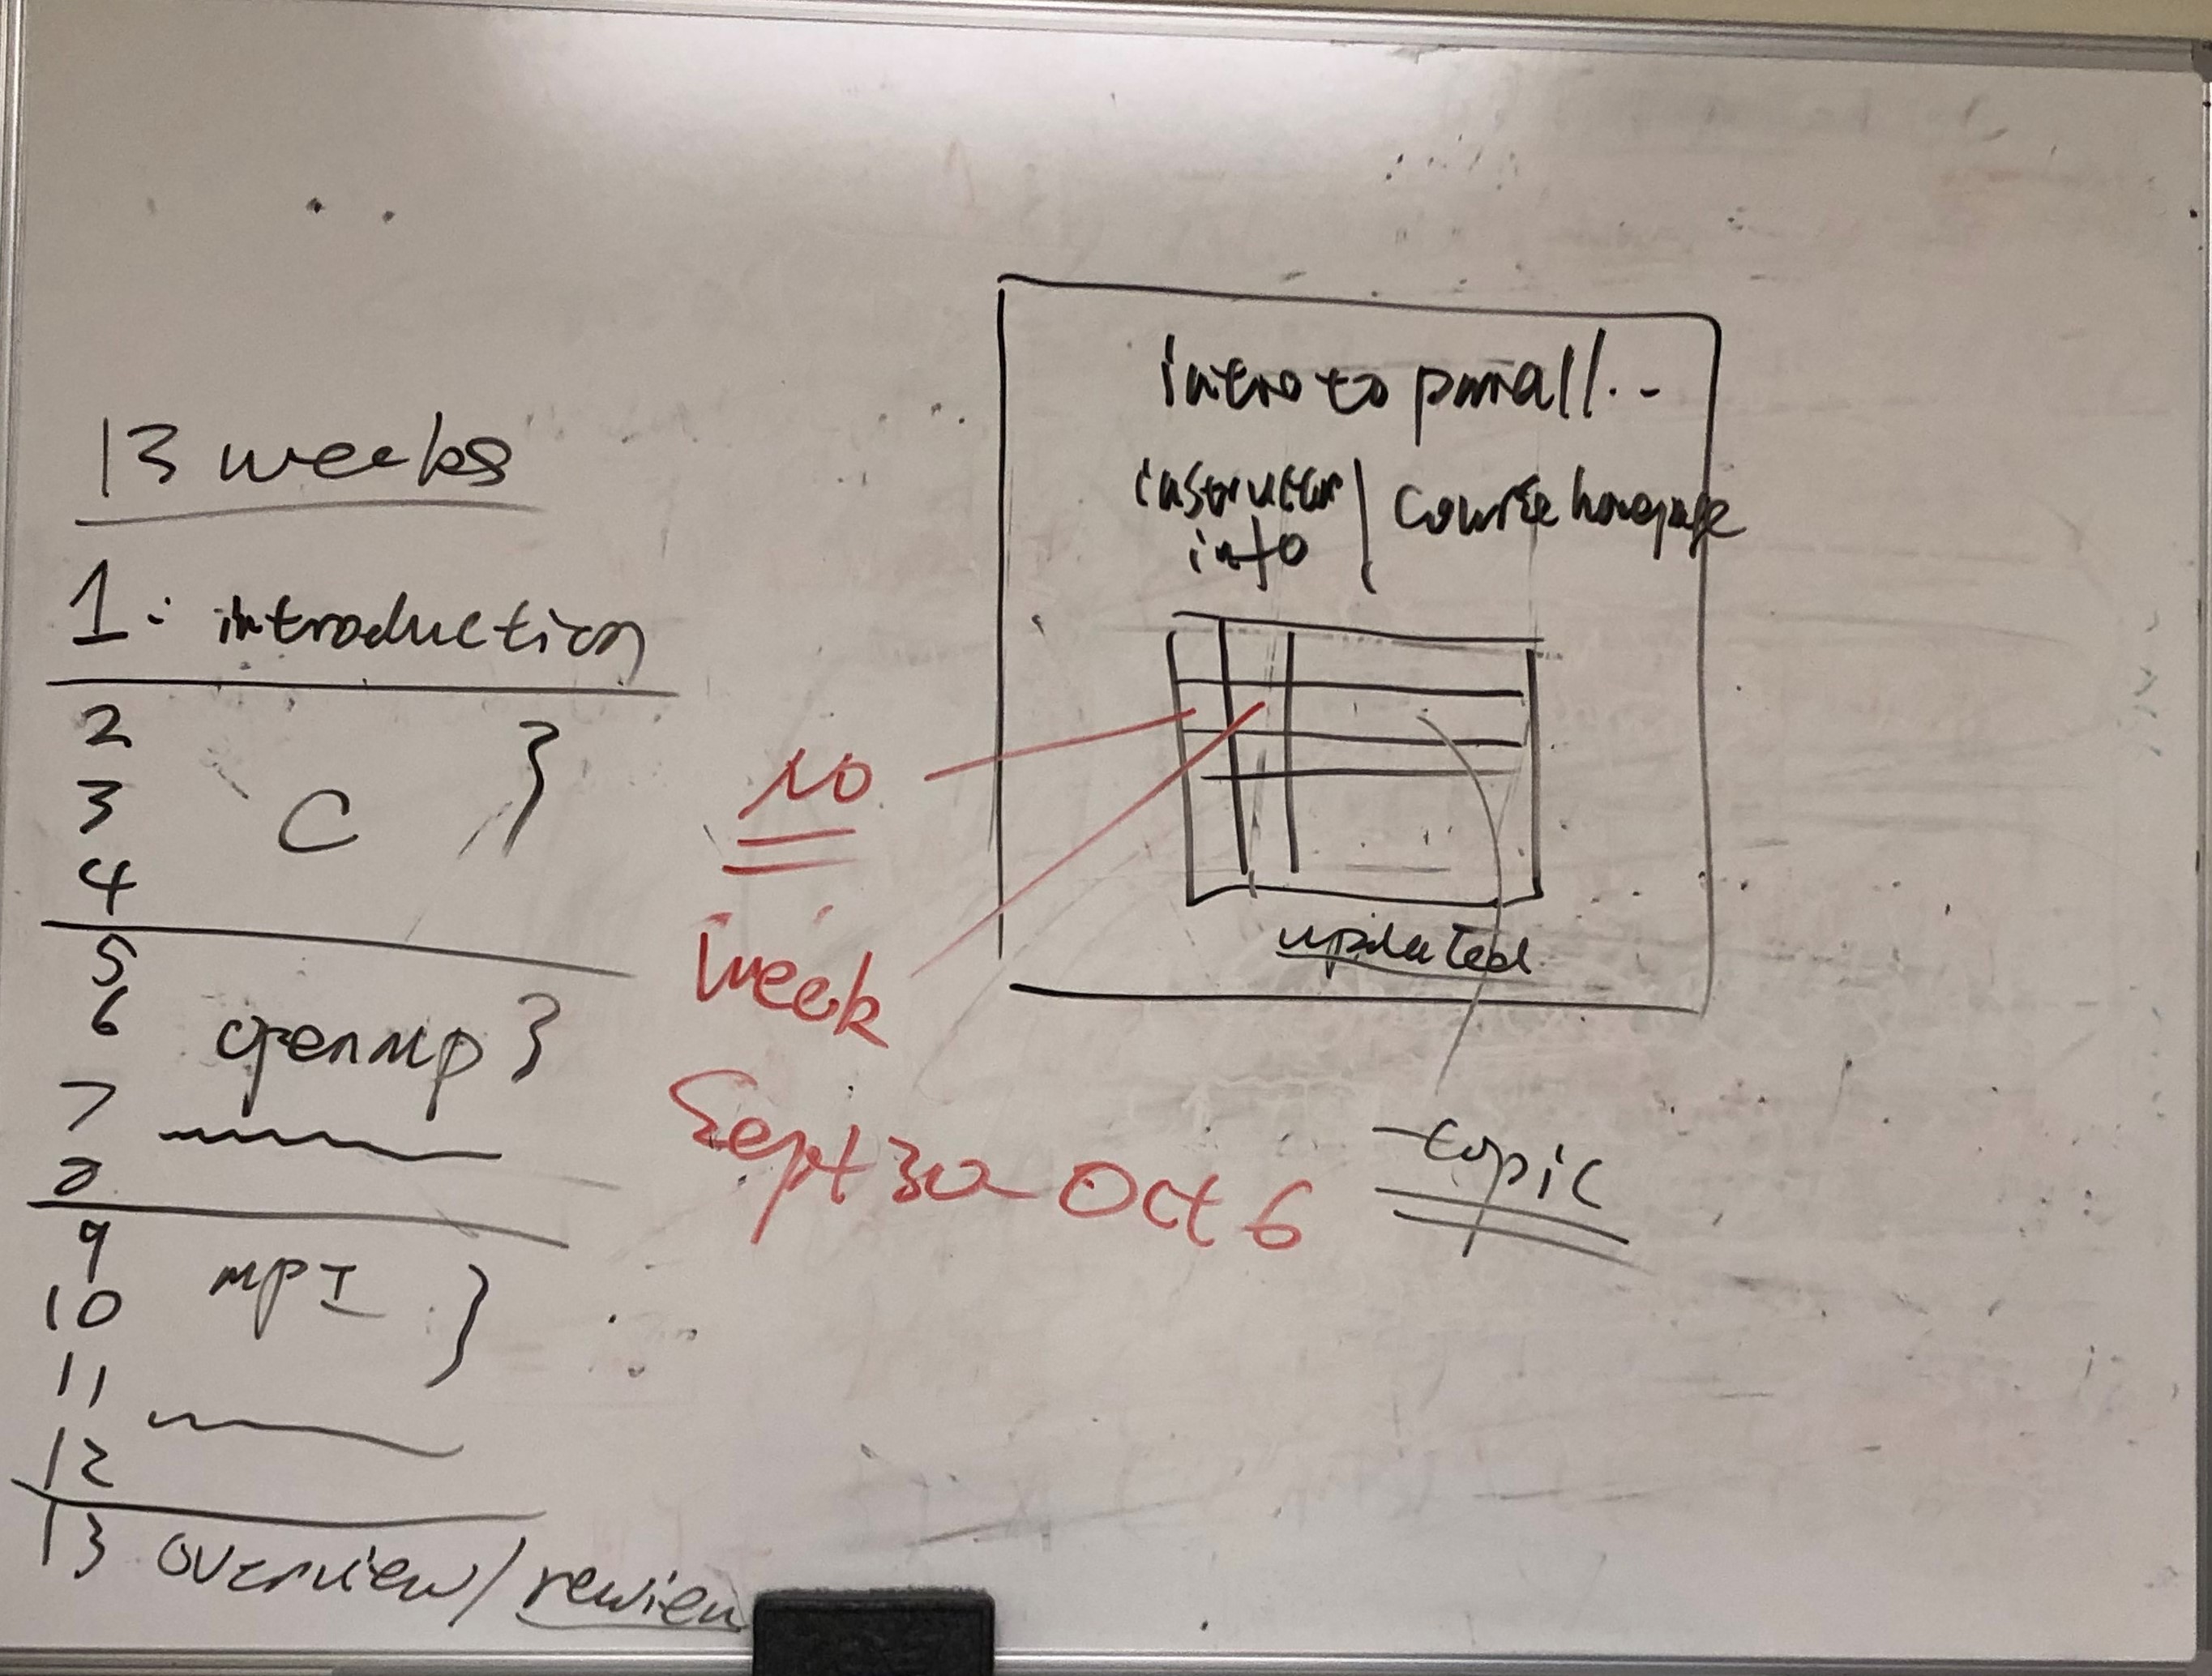 13 weeks
1: introduction
2
3 C }
4
5
6 openmp }
7
8
9
10 MPI }
11
12
13 overview/review
intro to parall..
instructor | course homepage
info
updated
NO
week
Sept 30 - Oct 6
topic